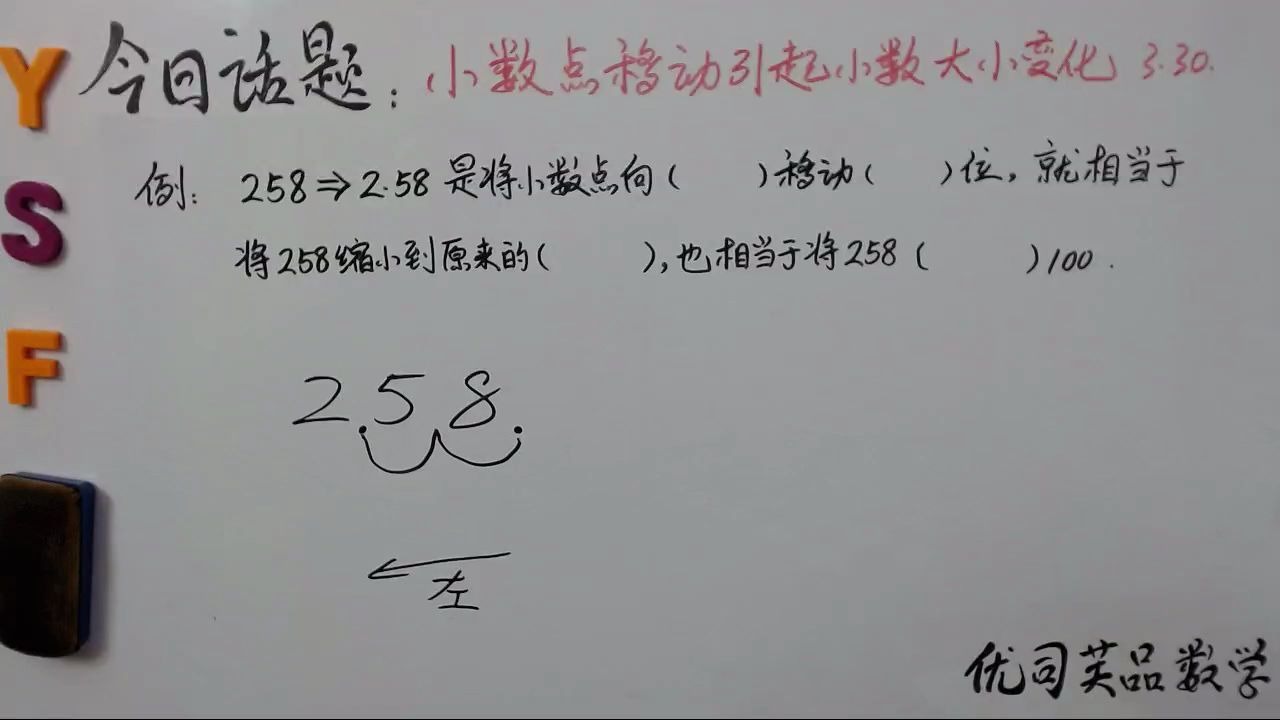 YSF
今日话题：小数点移动引起小数大小变化 3.30.
例：258⇒2.58是将小数点向（ ）移动（ ）位，就相当于
将258缩小到原来的（ ），也相当于将258（ ）100.
2.58.
左
优司芙品数学